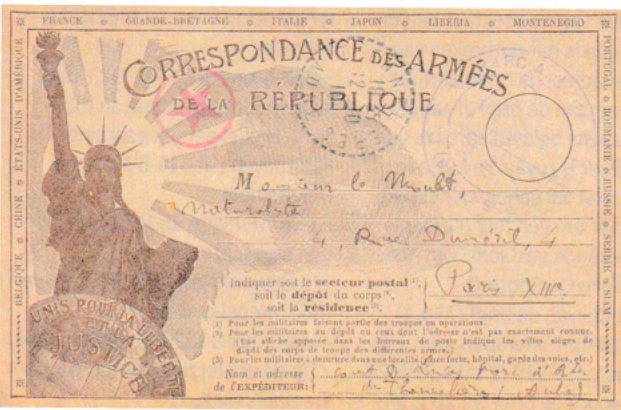 FRANCE o GRANDE-BRETAGNE o ITALIE o JAPON o LIBÉRIA o MONTENEGRO
BELGIQUE o CHINE o ÉTATS-UNIS D'AMÉRIQUE
PORTUGAL o ROUMANIE o RUSSIE o SERBIE o SIAM
CORRESPONDANCE DES ARMÉES
DE LA RÉPUBLIQUE
Monsieur le Moult,
Naturaliste
4, Rue Duméril, 4
Paris XIIIe
Indiquer soit le secteur postal (1),
soit le dépôt du corps (2),
soit la résidence (3).
UNIS POUR LA LIBERTÉ
ET LA
JUSTICE
(1) Pour les militaires faisant partie des troupes en opérations.
(2) Pour les militaires au dépôt ou ceux dont l'adresse n'est pas exactement connue.
(Une affiche apposée dans les bureaux de poste indique les villes sièges de
dépôt des corps de troupe des différentes armes.)
(3) Pour les militaires à demeure dans une localité (place forte, hôpital, garde des voies, etc.)
Nom et adresse
de l'EXPÉDITEUR :
Parc d'
(Aube)